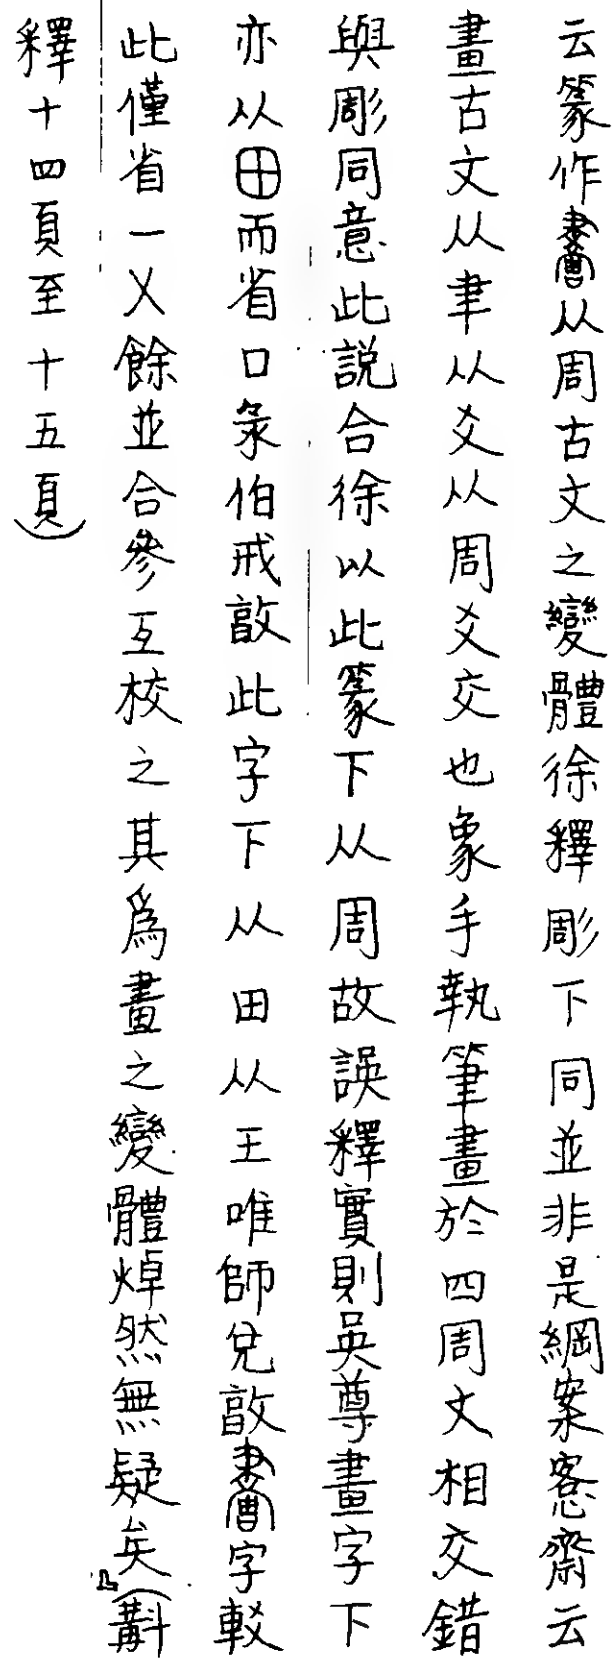 云篆作從周古文之變體徐釋彫下同並非是綱案愙齋云
畫古文从聿从爻从周爻交也象手執筆畫於四周文相交錯
與彫同意此説合徐以此篆下从周故誤釋實則吳尊畫字下
亦从田而省口彔伯戒敃此字下从田从王唯師兌敃字較
此僅省一乂餘並合參互校之其為畫之變體焯然無疑矣（斠
釋十四頁至十五頁）